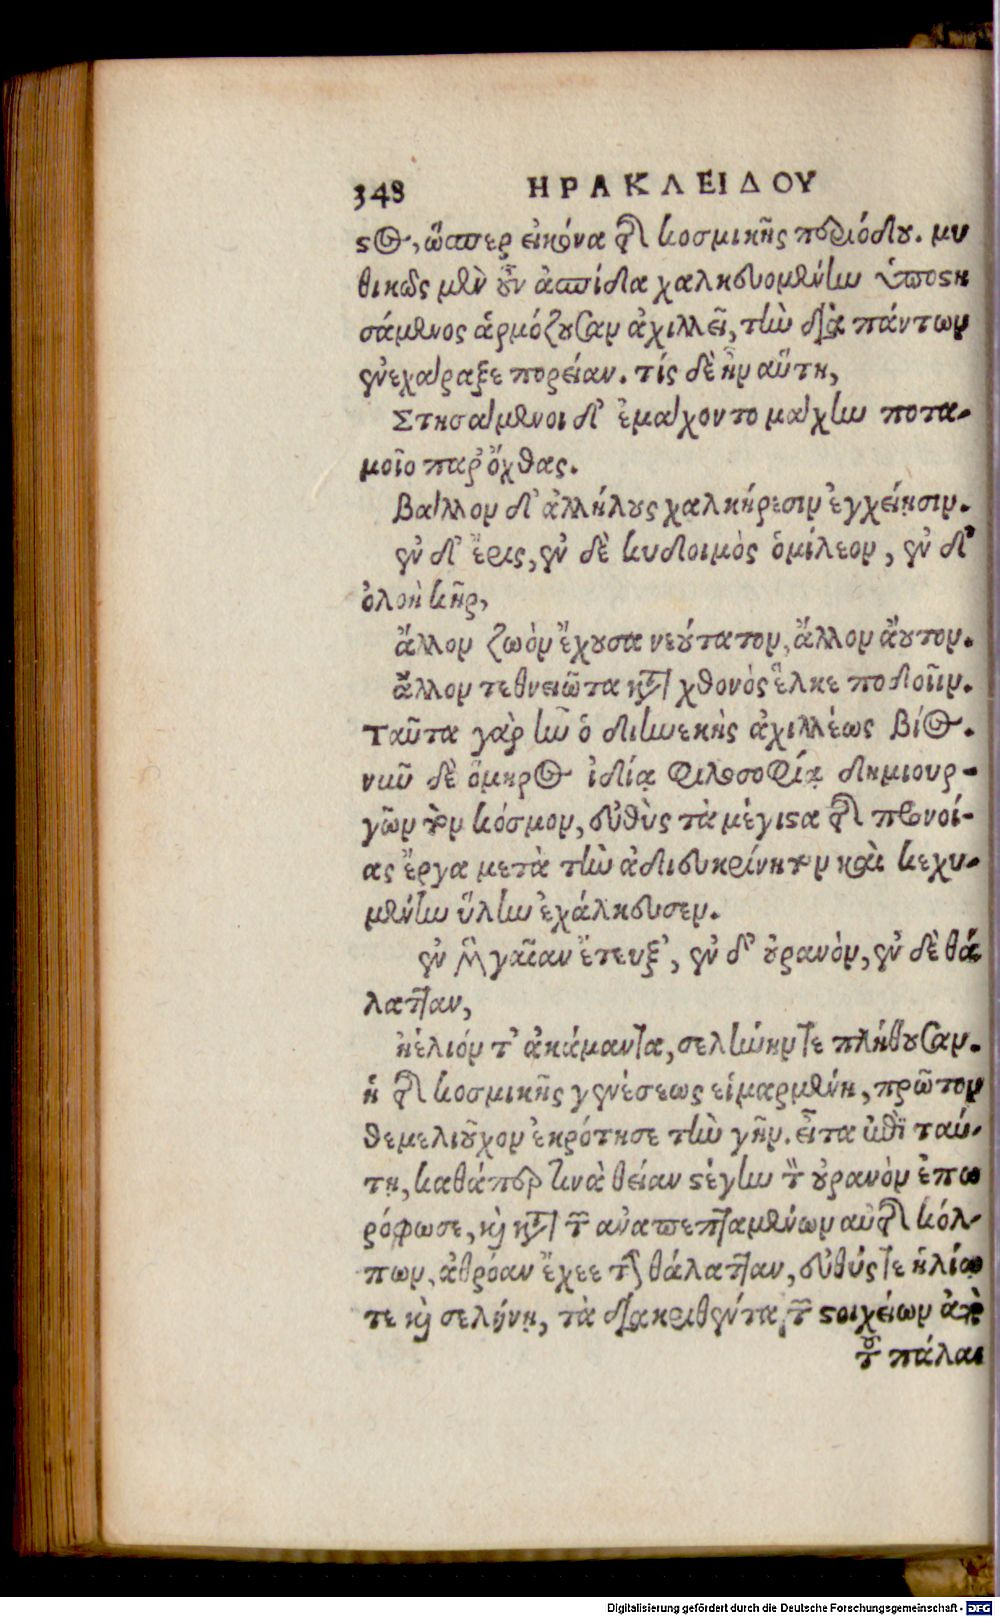 348 ΗΡΑΚΛΕΙΔΟΥ
ςος, ὥσπερ εἰκόνα τῆς κοσμικῆς περιόδου. μυ
θικῶς μὲν οὖν ἀσπίδα χαλκευομένην ὑποστη
σάμενος ἁρμόζουσαν ἀχιλλεῖ, τὴν διὰ πάντων
ἐνεχάραξε πορείαν. τίς δὲ ἦν αὕτη,
Στησάμενοι δ' ἐμάχοντο μάχην ποτα-
μοῖο παρ' ὄχθας.
Βάλλον δ' ἀλλήλους χαλκήρεσιν ἐγχείησιν.
ἐν δ' ἔρις, ἐν δὲ κυδοιμὸς ὁμίλεον, ἐν δ'
ὀλοὴ κῆρ,
ἄλλον ζωὸν ἔχουσα νεούτατον, ἄλλον ἄουτον.
ἄλλον τεθνειῶτα κατὰ χθονὸς ἕλκε ποδοῖιν.
Ταῦτα γὰρ ἦν ὁ διηνεκὴς ἀχιλλέως βίος.
νυνῦ δὲ ὅμηρος ἰδίᾳ φιλοσοφίᾳ δημιουρ-
γῶν τὸν κόσμον, εὐθὺς τὰ μέγιστα τῆς προνοί-
ας ἔργα μετὰ τὴν ἀδιευκρίνητον καὶ κεχυ-
μένην ὕλην ἐχάλκευσεν.
ἐν μὲν γαῖαν ἔτευξ', ἐν δ' οὐρανὸν, ἐν δὲ θά
λατταν,
ἠέλιόν τ' ἀκάμαντα, σελήνην τε πλήθουσαν.
ἡ τῆς κοσμικῆς γενέσεως εἱμαρμένη, πρῶτον
θεμελιοῦχον ἐκρότησε τὴν γῆν. εἶτα ἐπὶ ταύ-
τῃ, καθάπερ τινὰ θείαν στέγην τὸν οὐρανὸν ἐπω
ρόφωσε, καὶ κατὰ τῶν ἀναπεπταμένων αὐτῆς κόλ-
πων, ἀθρόαν ἔχεε τὴν θάλατταν, εὐθύς τε ἡλίῳ
τε καὶ σελήνῃ, τὰ διακριθέντα τῶν στοιχείων ἀπὸ
τοῦ πάλαι
Digitalisierung gefördert durch die Deutsche Forschungsgemeinschaft - DFG